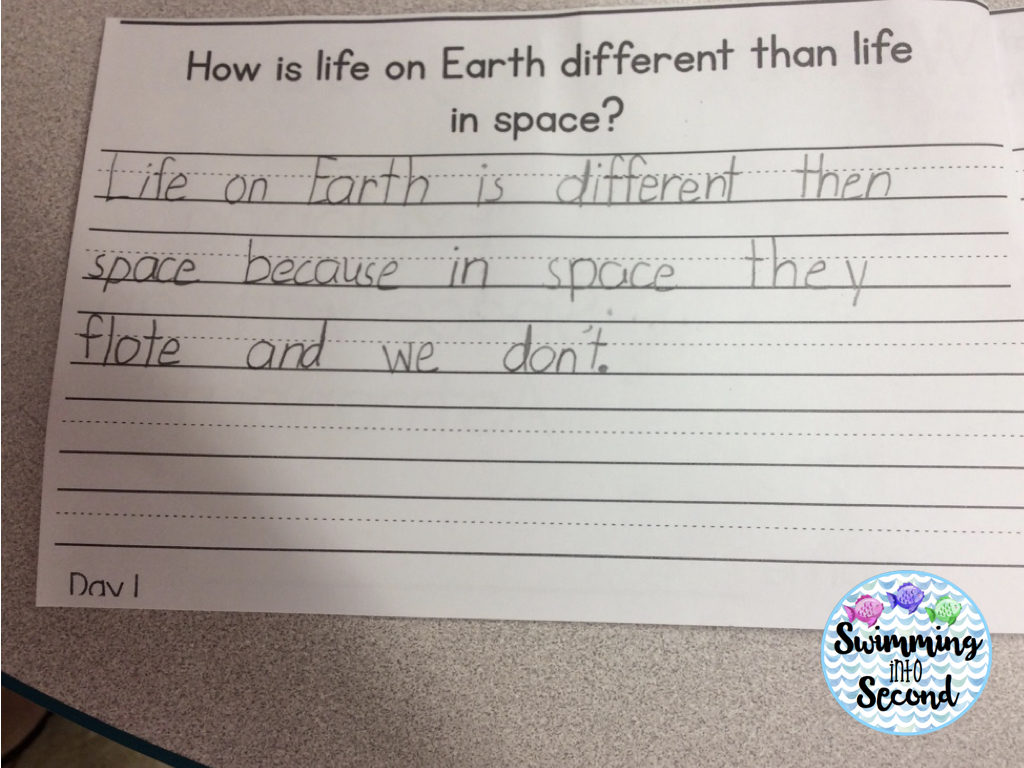 How is life on Earth different than life
in space?
Life on Earth is different then
space because in space they
flote and we don't.
Day 1
Swimming
into
Second